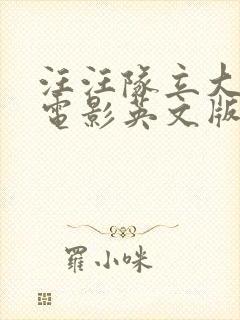 汪汪隊立大
電影英文版
羅小咪